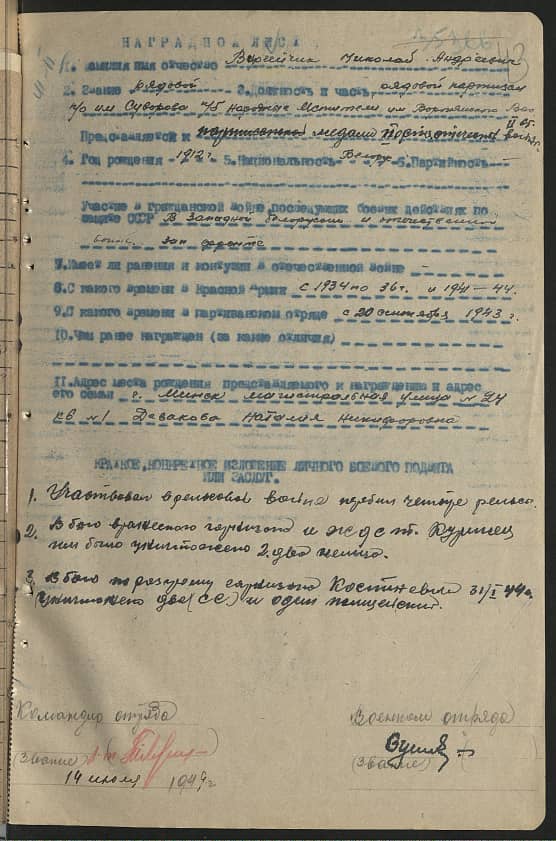 НАГРАДНОЙ ЛИСТ
1. Фамилия имя отчество Николай Андреевич
2. Звание рядовой 3. Должность и часть рядовой партизан
п/о им Суворова п/б Народные Мстители им Воронянского
Представляется к медали Партизанская
4. Год рождения 1912 г. 5. Национальность Белорус 6. Партийность -
Участие в гражданской войне, последующих боевых действиях по
защите СССР В Западной Белоруссии и отечественной
войне. зап фронте
7. Имеет ли ранения и контузии в отечественной войне -
8. С какого времени в Красной Армии с 1934 по 36 г. и 1941 - 44.
9. С какого времени в партизанском отряде с 20 сентября 1943 г.
10. Чем ранее награжден (за какие отличия)
11. Адрес места рождения представляемого к награждению и адрес
его семьи г. Минск магистральная улица № 24
кв №1 Девакова Наталия Никифоровна
КРАТКОЕ, КОНКРЕТНОЕ ИЗЛОЖЕНИЕ ЛИЧНОГО БОЕВОГО ПОДВИГА
ИЛИ ЗАСЛУГ.
1. Участвовал в рельсовой войне перебил четыре рельсы.
2. В бою вражеского гарнизона и ж.д. ст. Куринец
им было уничтожено 2 два немца.
3. В бою по разгрому гарнизона Костеневичи 31/I 44 г.
уничтожено два (СС) и один полицейский.
Командир отряда Военком отряда
(звание) (звание)
14 июля 1944 г.